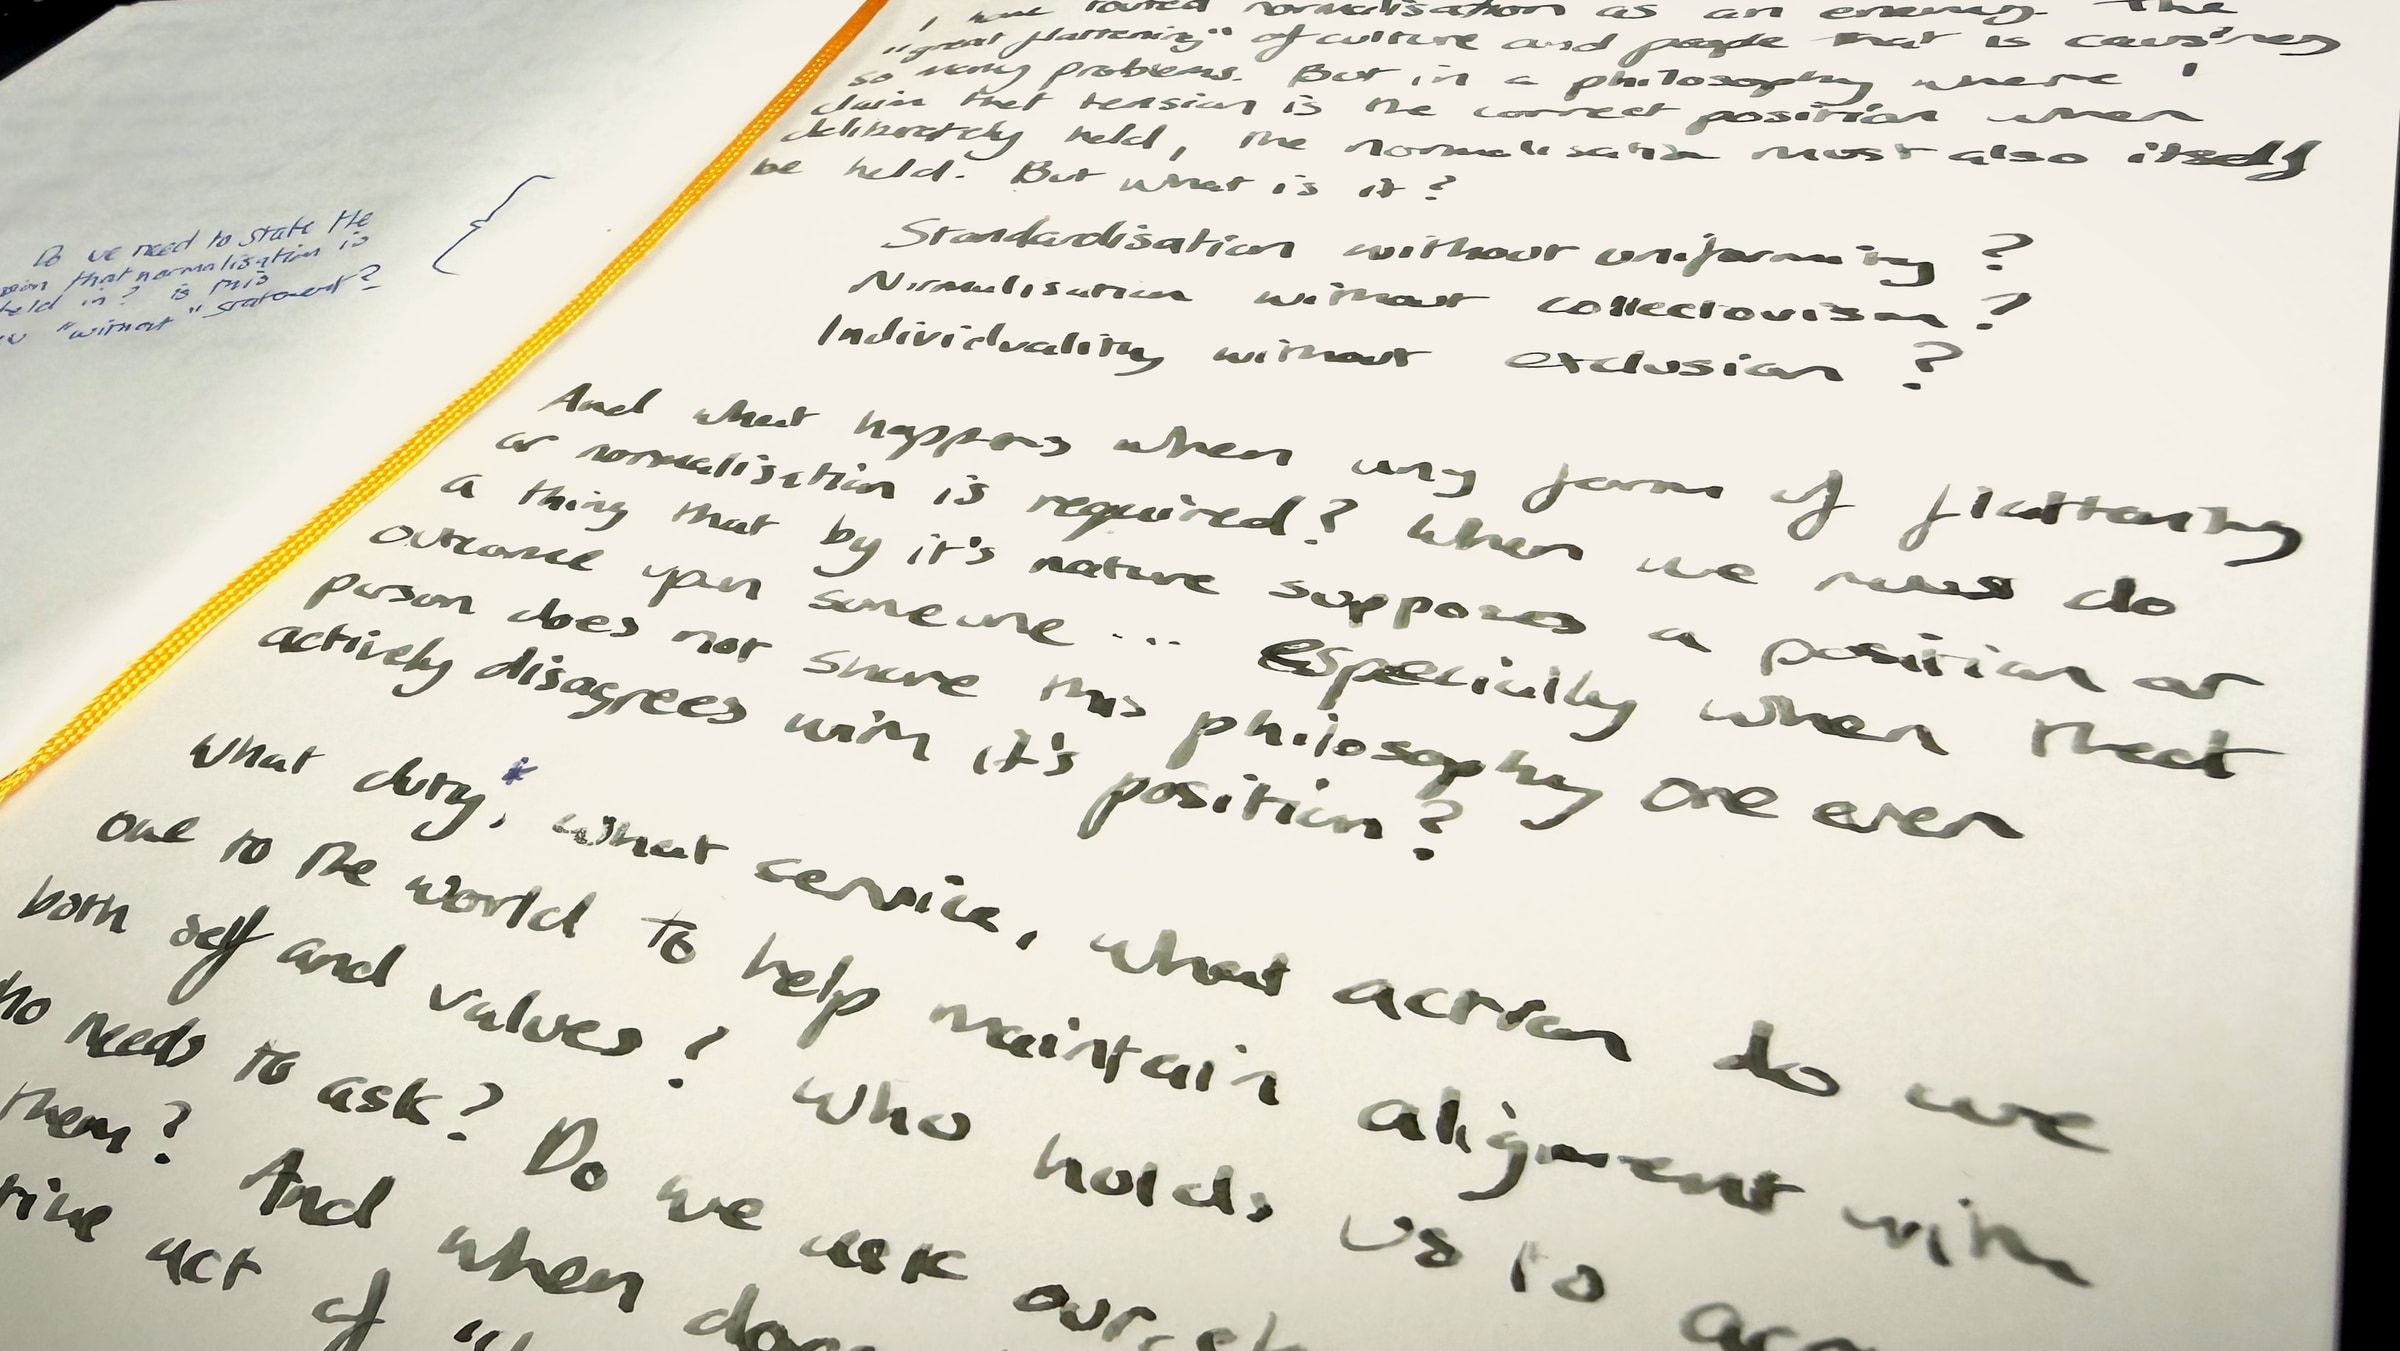 Do we need to state the
that normalisation is
held in? is this
"without" statement?
I have touted normalisation as an enemy. The
"great flattening" of culture and people that is causing
so many problems. But in a philosophy where I
claim that tension is the correct position when
deliberately held, the normalisation must also itself
be held. But what is it?
Standardisation without uniformity?
Normalisation without collectovism?
Individuality without exclusion?
And what happens when any form of flattening
or normalisation is required? When we must do
a thing that by it's nature supposes a position or
outcome upon someone... especially when that
person does not share this philosophy one even
actively disagrees with it's position?
What duty*, what service, what action do we
owe to the world to help maintain alignment with
both self and values? Who holds us to
needs to ask? Do we ask
them? And when
act of